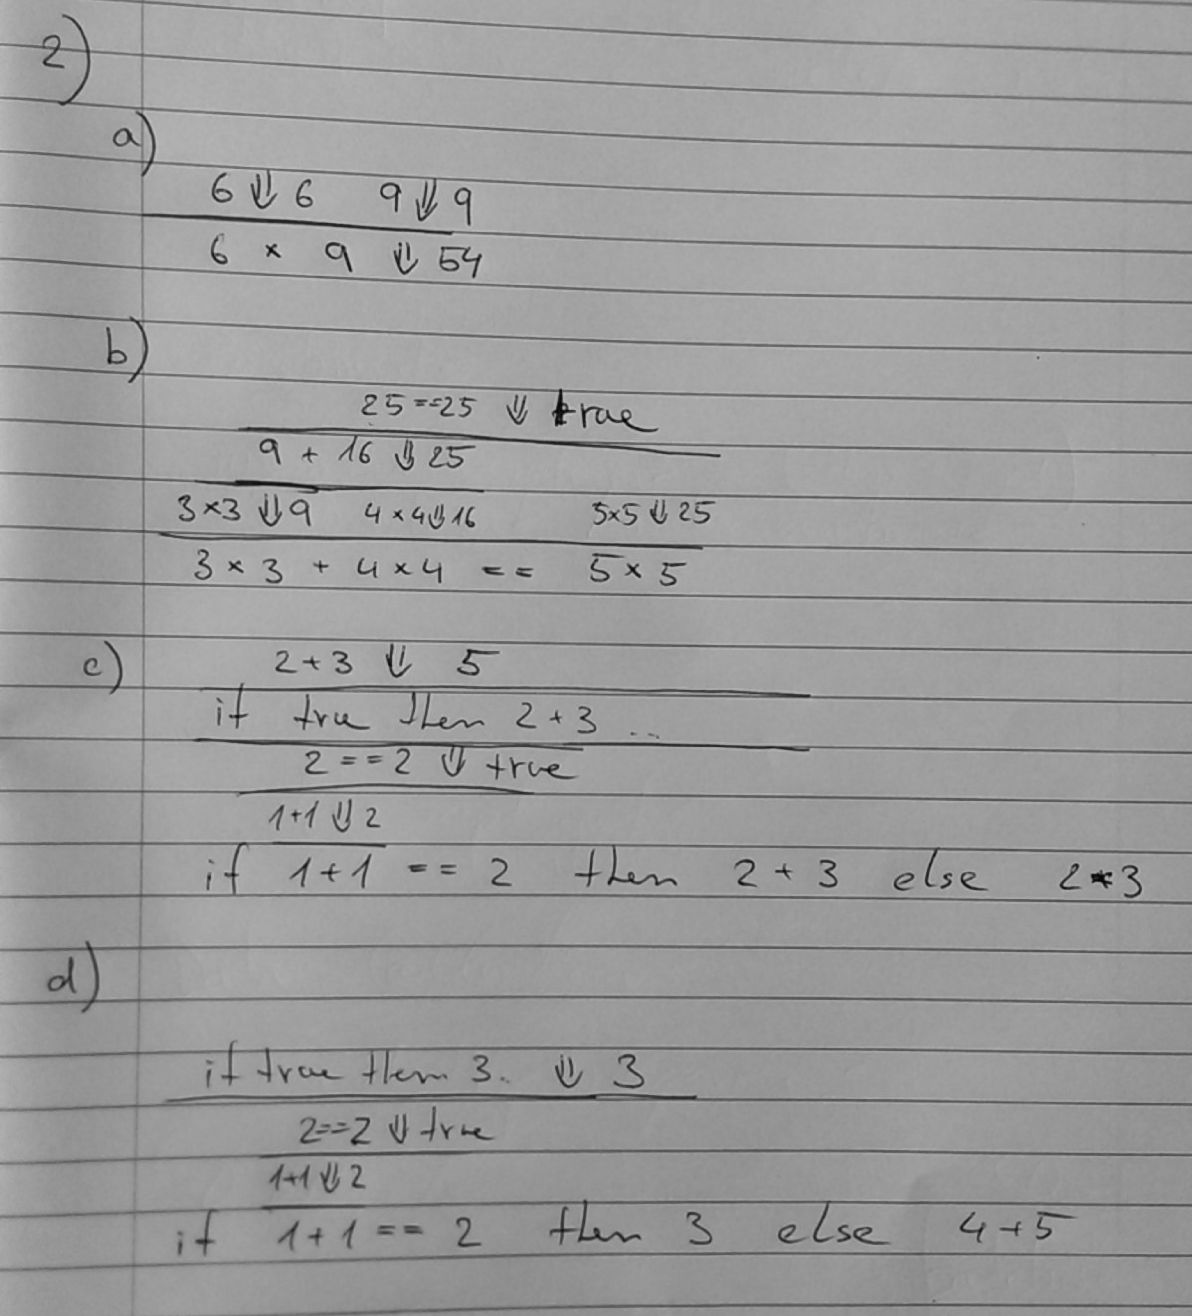 2)
a)
6 ⇓ 6 9 ⇓ 9
6 × 9 ⇓ 54
b)
25==25 ⇓ true
9 + 16 ⇓ 25
3×3 ⇓ 9 4×4 ⇓ 16 5×5 ⇓ 25
3 × 3 + 4 × 4 == 5 × 5
c)
2+3 ⇓ 5
if true then 2+3 ..
2 == 2 ⇓ true
1+1 ⇓ 2
if 1+1 == 2 then 2 + 3 else 2*3
d)
if true then 3. ⇓ 3
2==2 ⇓ true
1+1 ⇓ 2
if 1+1 == 2 then 3 else 4+5